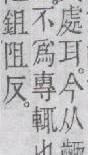 處耳今从
不爲專輒
鉏阻反